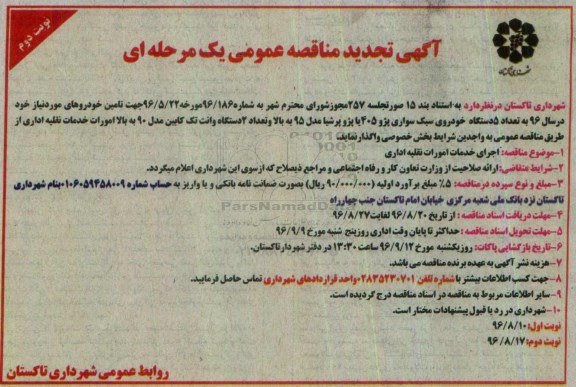 نوبت دوم
آگهی تجدید مناقصه عمومی یک مرحله ای
شهرداری تاکستان درنظردارد به استناد بند ۱۵ صورتجلسه ۲۵۷مجوزشورای محترم شهر به شماره۹۶/۱۸۶مورخه۹۶/۵/۲۲جهت تامین خودروهای موردنیاز خود
درسال ۹۶ به تعداد ۵دستگاه خودروی سبک سواری پژو ۴۰۵یا پژو پرشیا مدل ۹۵ به بالا وتعداد ۲دستگاه وانت تک کابین مدل ۹۰ به بالا امورات خدمات نقلیه اداری از
طریق مناقصه عمومی به واجدین شرایط بخش خصوصی واگذارنماید.
۱-موضوع مناقصه: اجرای خدمات امورات نقلیه اداری
۲-شرایط متقاضی: ارائه صلاحیت از وزارت تعاون کار و رفاه اجتماعی و مراجع ذیصلاح که ازسوی این شهرداری اعلام میگردد.
۳-مبلغ و نوع سپرده درمناقصه: ۵٪ مبلغ برآورد اولیه (۹۰/۰۰۰/۰۰۰ ریال) بصورت ضمانت نامه بانکی و یا واریز به حساب شماره ۰۱۰۶۰۵۹۴۵۸۰۰۹بنام شهرداری
تاکستان نزد بانک ملی شعبه مرکزی خیابان امام تاکستان جنب چهارراه
۴-مهلت دریافت اسناد مناقصه : از تاریخ ۹۶/۸/۲۰ لغایت۹۶/۸/۲۷
۵-مهلت تحویل اسناد مناقصه : حداکثر تا پایان وقت اداری روزپنج شنبه مورخ ۹۶/۹/۹
۶-تاریخ بازگشایی پاکات: روزیکشنبه مورخ ۹۶/۹/۱۲ ساعت ۱۳:۳۰ در دفتر شهردارتاکستان.
۷-هزینه نشر آگهی به عهده برنده مناقصه می باشد.
۸-جهت کسب اطلاعات بیشتر با شماره تلفن ۰۲۸۳۵۲۳۰۷۰۱واحد قراردادهای شهرداری تماس حاصل فرمایید.
۹-سایر اطلاعات مربوط به مناقصه در اسناد مناقصه درج گردیده است.
۱۰-شهرداری در رد یا قبول پیشنهادات مختار است.
نوبت اول: ۹۶/۸/۱۰
نوبت دوم: ۹۶/۸/۱۷
روابط عمومی شهرداری تاکستان